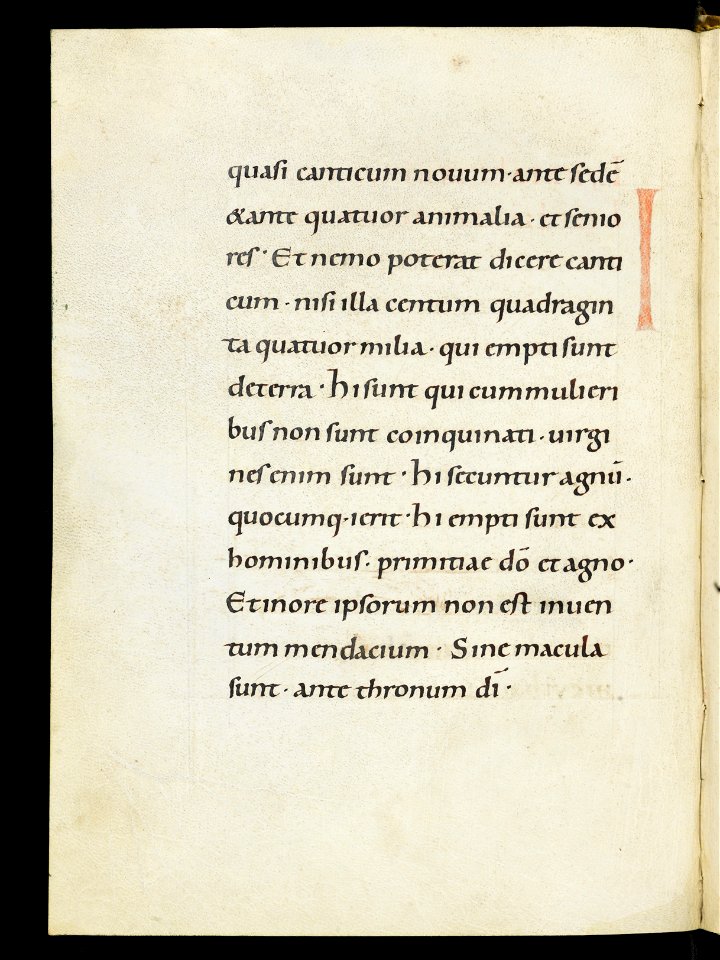 quasi canticum nouum · ante sedē
&ante quatuor animalia · et senio
res · Et nemo poterat dicere canti
cum · nisi illa centum quadragin
ta quatuor milia · qui empti sunt
deterra · hi sunt qui cum mulieri
bus non sunt coinquinati · uirgi
nes enim sunt · hi secuntur agnū ·
quocumq · ierit · hi empti sunt ex
hominibus · primitiae dō et agno ·
Et inore ipsorum non est inuen
tum mendacium · Sine macula
sunt · ante thronum dī ·
I